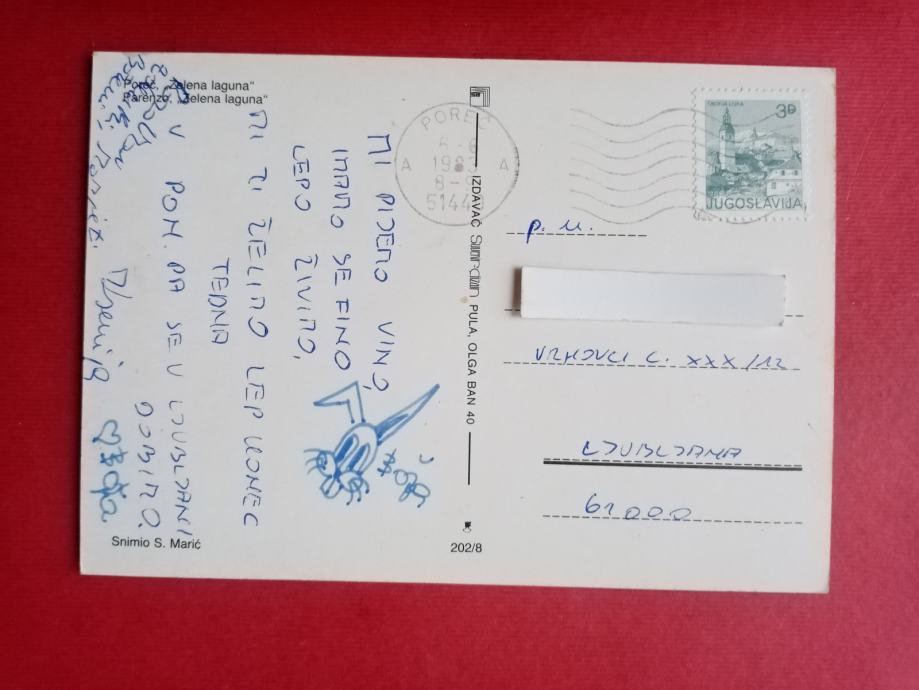 Poreč, „Zelena laguna“
Parenzo, „Zelena laguna“
MI PIJEMO VINO,
IMAMO SE FINO
LEPO ŽIVIMO,
MI TI ŽELIMO LEP KONEC
TEDNA
V PON. PA SE V LJUBLJANI
DOBIMO.
Ksenija
Snimio S. Marić
IZDAVAČ PULA, OLGA BAN 40
202/8
POREČ
A A
51440
ŠKOFJA LOKA
3D
JUGOSLAVIJA
p. n.
VRHOVCI C. XXX/12
LJUBLJANA
61000